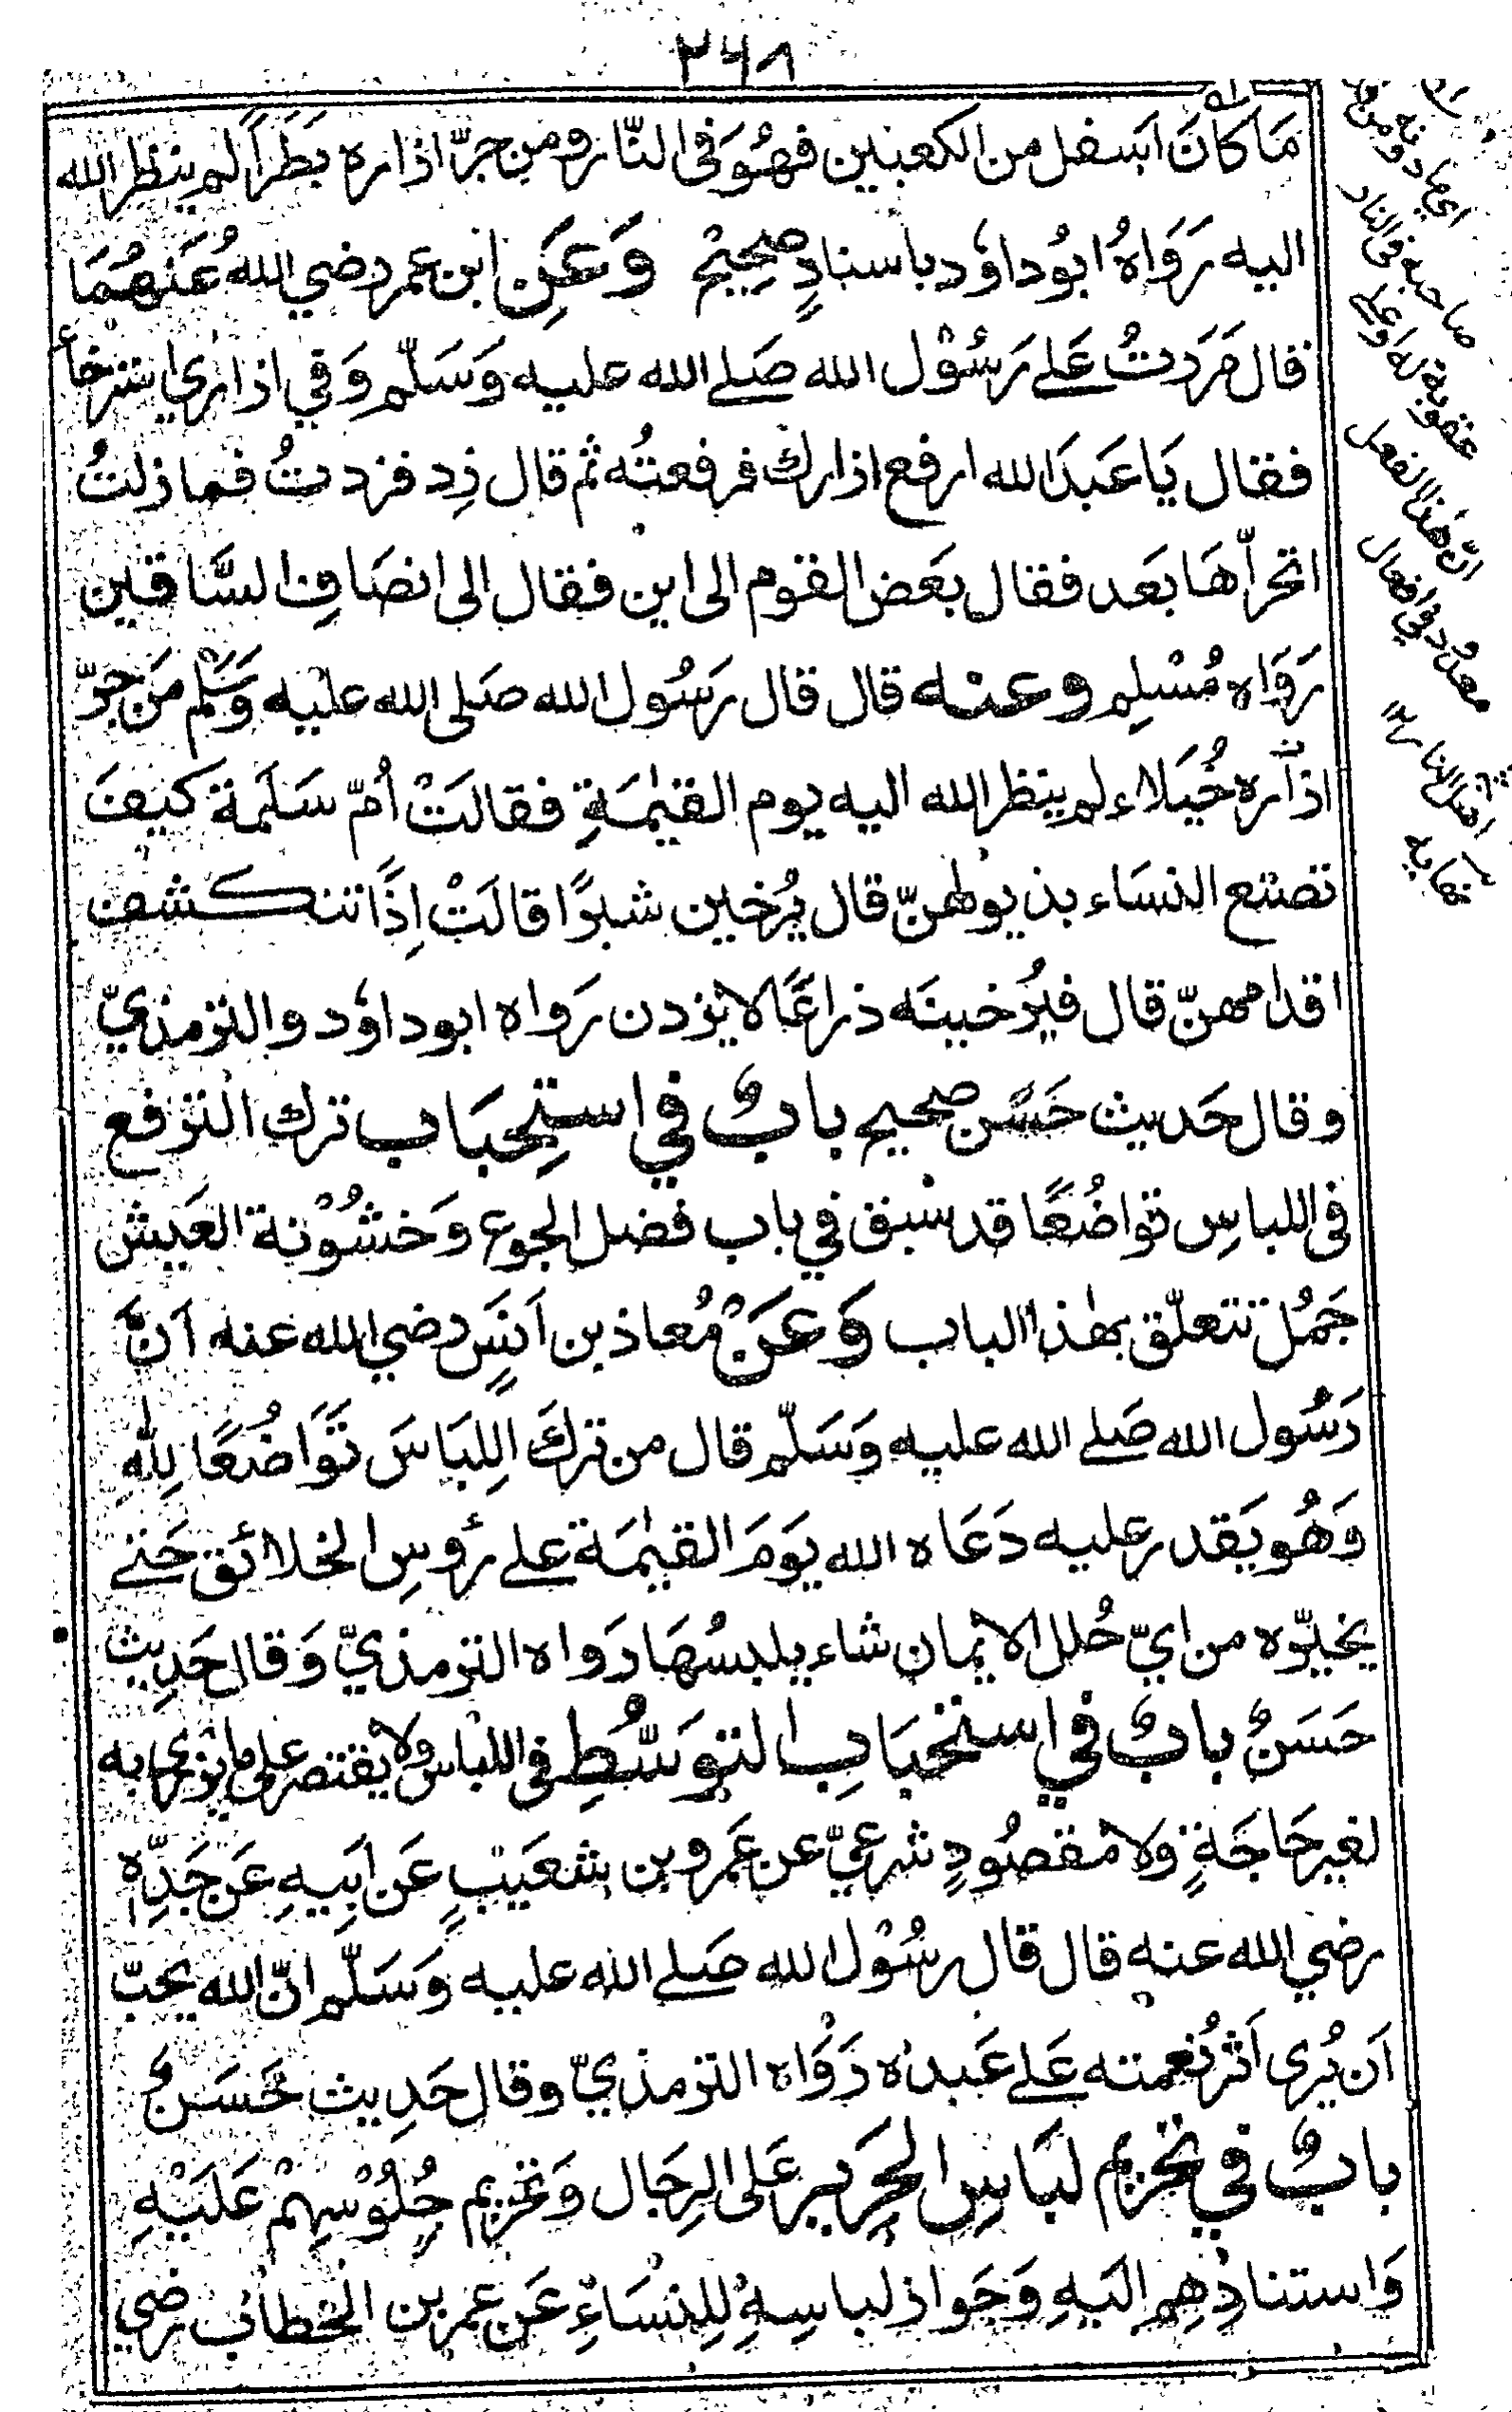 ٢٦٨
مَا كَانَ اَسفل من الكعبين فهُوَ فى النّار ومن جرّ ازاره بَطَراً لم ينظر الله
اليه رَوَاهُ ابُو داوٗد باسنادٍ صحِيحْ وَعَنِ ابن عمر رضي اللهُ عَنهُمَا
قال مَرَرتُ عَلے رَسُوْل الله صَلے الله عليه وَسَلّم وَفي ازاري استرخاً
فقال يَا عَبدَ الله ارفع ازارك فرفعتُه ثم قال زِد فزدتُ فما زلتُ
اتحرّاهَا بَعد فقال بَعَض القوم الى اين فقال الى انصَافِ السَّاقين
رَوَاه مُسْلِم وعنه قال قال رَسُول الله صَلى الله عليه وَسَلّم مَن جرّ
ازاره خُيَلاء لم ينظر الله اليه يوم القيٰمَةِ فقالَتْ اُمّ سَلَمة كيفَ
تصنع النسَاء بذيولهنّ قال يُرخين شبرًا قالَتْ اِذًا تنكشف
اقدامهنّ قال فيُرخينَه ذراعًا لا يزدن رَواه ابو داوٗد والترمذيّ
وقال حَديث حَسَن صحيح بابٌ في استِحبَاب ترك الترفع
فى اللباسِ تواضُعًا قد سبق في باب فضل الجوع وَخشُوْنة العَيش
جَمُل تتعلّق بهٰذا الباب وَعَنْ مُعاذ بن اَنَسٍ رضي الله عنه اَنَّ
رَسُول الله صَلے الله عليه وَسَلّم قال من تركَ اللِبَاسَ تَوَاضُعًا لِلّٰهِ
وَهُو يَقدر عليه دَعَاه الله يَومَ القيٰمَة علے رؤسِ الخلائق حَتے
يخيّره من ايّ حُلل الايمان شاء يلبسُهَا رَواه الترمذيّ وَقال حَدِيث
حَسَنٌ بابٌ في استحبَابِ التوَسُّطِ فى اللباس ولا يقتصر على ما يزري به
لغير حَاجَةٍ وَلا مقصُودٍ شرعيّ عن عَمرو بن شعَيبٍ عَن ابَيهِ عَن جَدِّه
رضي الله عنه قال قال رسُوْل الله صَلے الله عليه وَسَلّم انّ الله يحبّ
اَن يُرى اَثرُ نعمته عَلے عَبدِه رَوَاه الترمذيّ وقال حَدِيث حَسَنٌ
بابٌ في تحريم لبَاسِ الحَرِير عَلى الرِجَال وَتحريم جُلُوْسِهِمْ عَلَيْهِ
وَاستنادِهِم اليَهِ وَجَواز لباسِهِ لِلنسَاءِ عَن عمر بن الخطاب رضي
اي ما دونه من
صاحبه فى النار
عقوبة له او على
انّ هٰذا الفعل
معدُود في افعال
اهل النار
نهايه